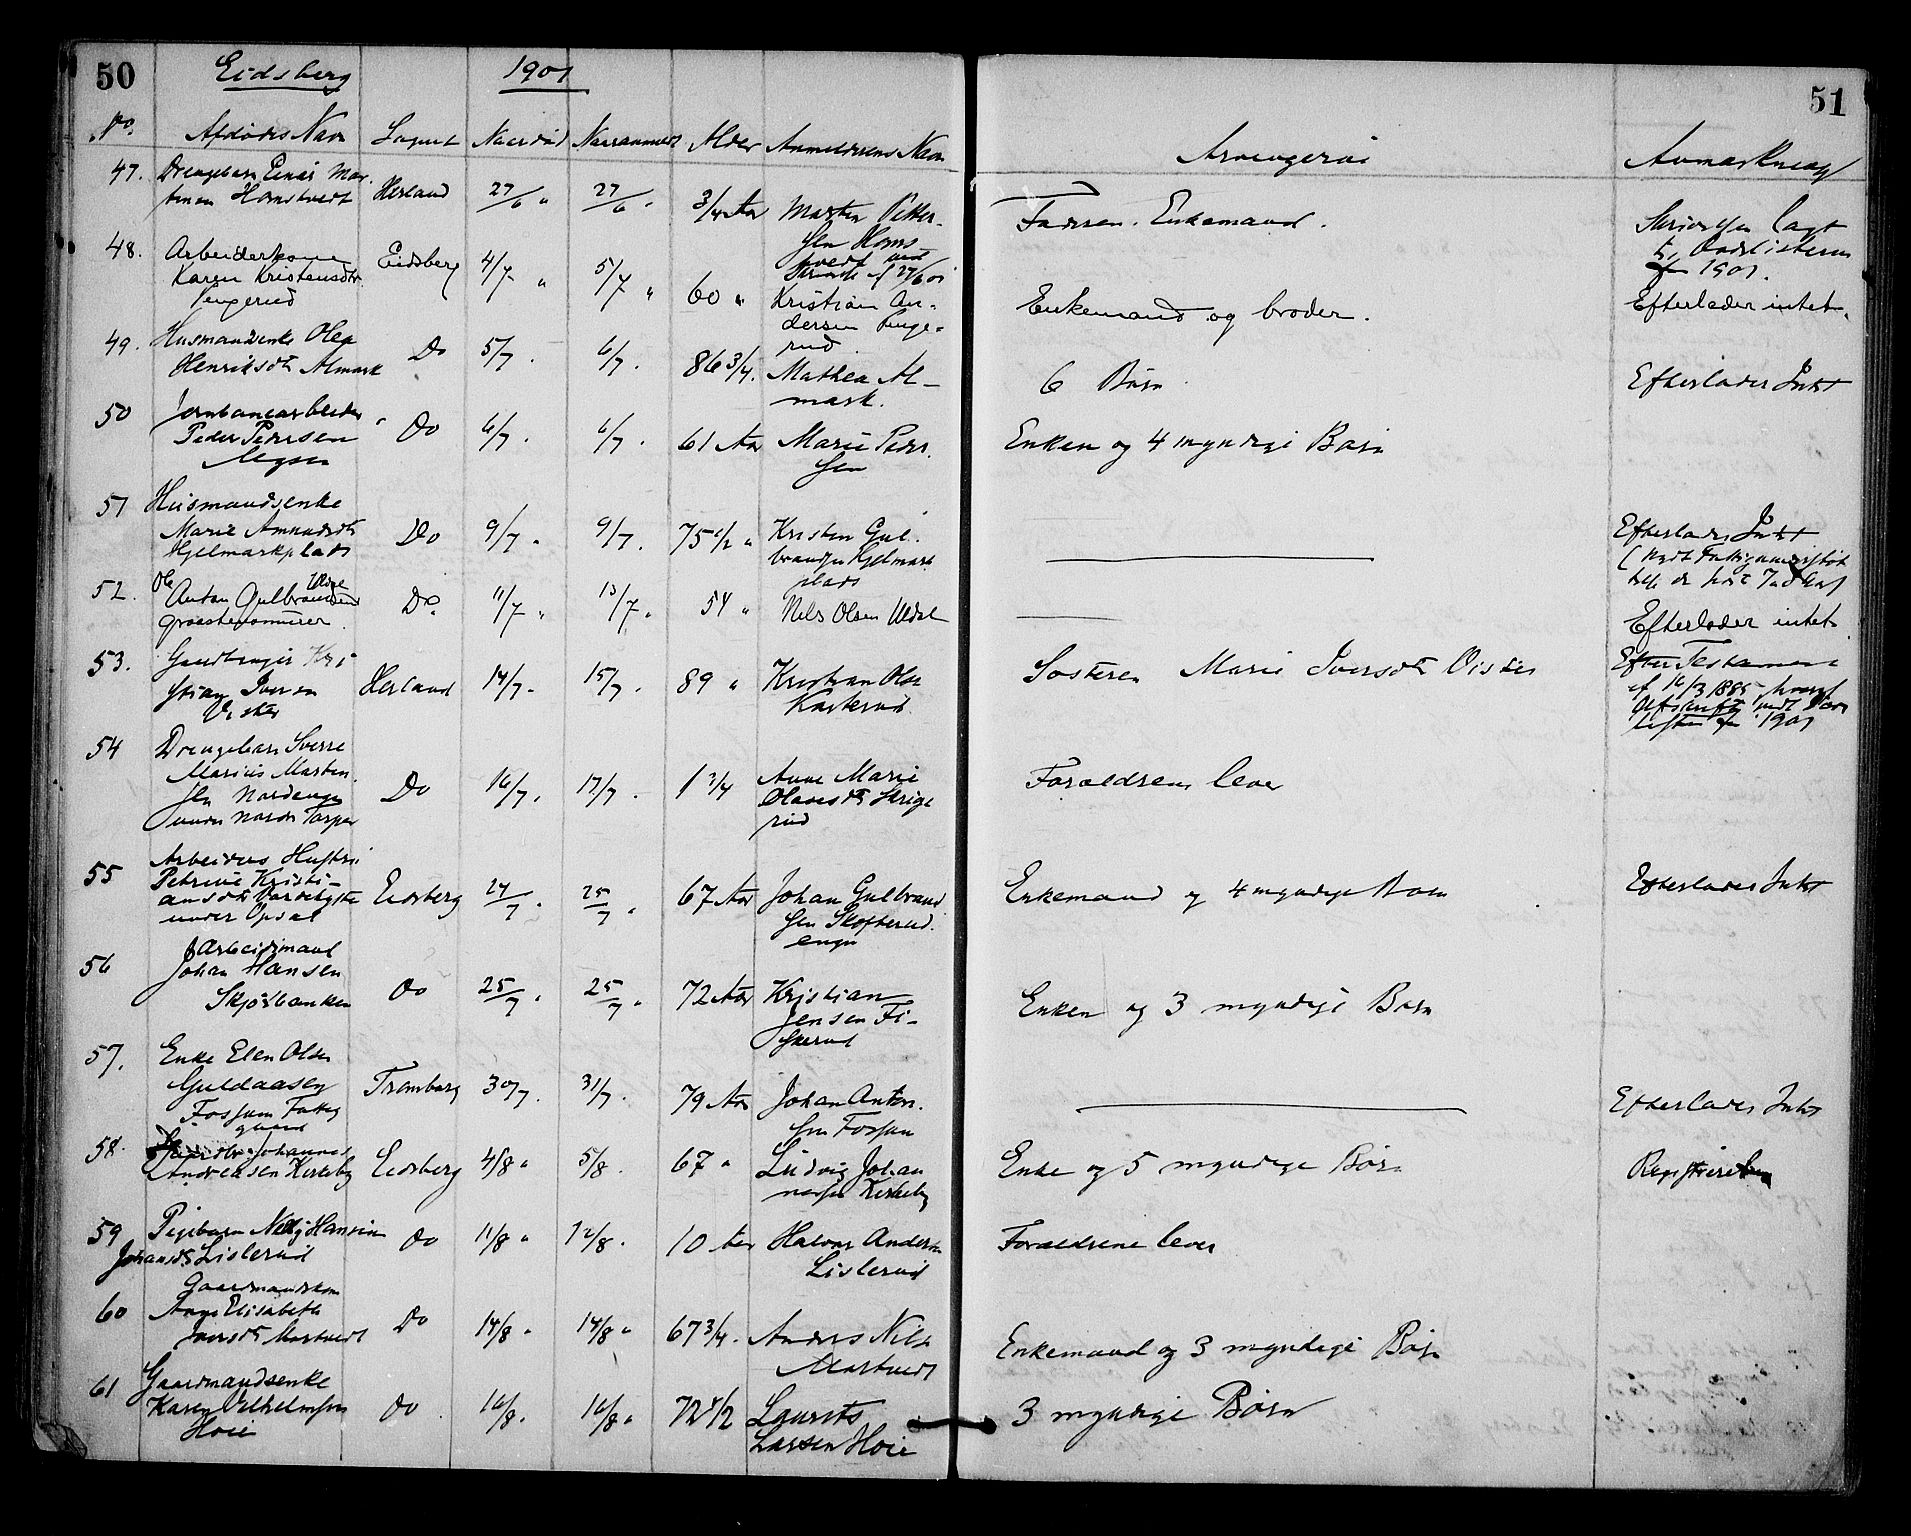 50 Eidsberg 1901
No. Afdødes Navn Sogn Naar død Naar anmeldt Alder Anmelderens Navn
47. Drengebarn Einar Mar-
tinsen Hornstvedt Herland 27/6 " 27/6 " 3/4 Aar Martin Petter-
sen Horns
tvedt ved
Skrivelse af 27/6 01
48. Arbeiderkone
Karen Kristensdtr
Pengerud Eidsberg 4/7 " 5/7 " 60 " Kristian An-
dersen Penge-
rud
49. Husmandsenke Olea
Henriksdtr Almark Do 5/7 . 6/7 . 86 3/4 . Mathea Al-
mark.
50 Jernbanearbeider
Peder Pedersen
Do 6/7 . 6/7 . 61 Aar Marie Peder
sen
51 Husmandsenke
Marie Amundsdtr
Hjelmarkplads Do 9/7 " 9/7 . 75 1/2 " Kristen Gul-
brandsen Hjelmark
plads
52. Ole Anton Gulbrandsen
Do. 11/7 " 13/7 " 54 " Nels Olsen
53. Gaardbruger Kri
stian Iversen
Vister Herland 14/7 - 15/7 . 89 " Kristian Olsen
Karterud
54 Drengebarn Sverre
Marius Martin
sen Nordengen
under Nordre Torper Do 16/7 . 17/7 . 1 3/4 Anne Marie
Olavesdtr
rud
55 Arbeiders Hustru
Petrine Kristi-
ansdtr
under Opsal Eidsberg 24/7 . 25/7 " 67 Aar Johan Gulbrand
sen Skofterud
engen
56 Arbeidsmand
Johan Hansen
Skjørbanken Do 25/7 " 25/7 " 72 Aar Kristian
Jensen Fi-
skerud
57. Enke Elen Olsen
Guldaasen
Fossum Fattig
gaard Trømborg 30/7 . 31/7 . 79 Aar Johan Anton.
sen Fossum
58. Johannes
Andreassen Kirkeby Eidsberg 4/8 " 5/8 . 67 " Ludvig Johan
nessen Kirkeby
59 Pigebarn Nelly Hansine
Johansdtr Lislerud Do 11/8 " 12/8 . 10 Aar Halvor Andersen
Lislerud
60 Gaardmandskone
Anne Elisabeth
Iversdtr Mortvedt Do 14/8 " 14/8 " 67 3/4 . Anders Nilsen
Mortvedt
61 Gaardmandsenke
Karen Vilhelmsen
Hoie Do . 16/8 . 16/8 " 72 1/2 Laurits
Larsen Hoie
51
Arvingerne Anmærkning
Faderen. Enkemand. Skrivelsen lagt
1901.
Enkemand og broder. Efterlader intet.
6 Børn Efterlader Intet
Enken og 4 myndige Børn
Efterlader Intet
Efterlader intet.
Søsteren Marie Iversdtr Vister Efter Testament
af 16/3 1885
Afskrift
1901
Forældrene lever
Enkemand og 4 myndige Børn Efterlader Intet
Enken og 3 myndige Børn
Efterlader Intet
Enke og 5 myndige Børn
Forældrene lever
Enkemand og 3 myndige Børn
3 myndige Børn